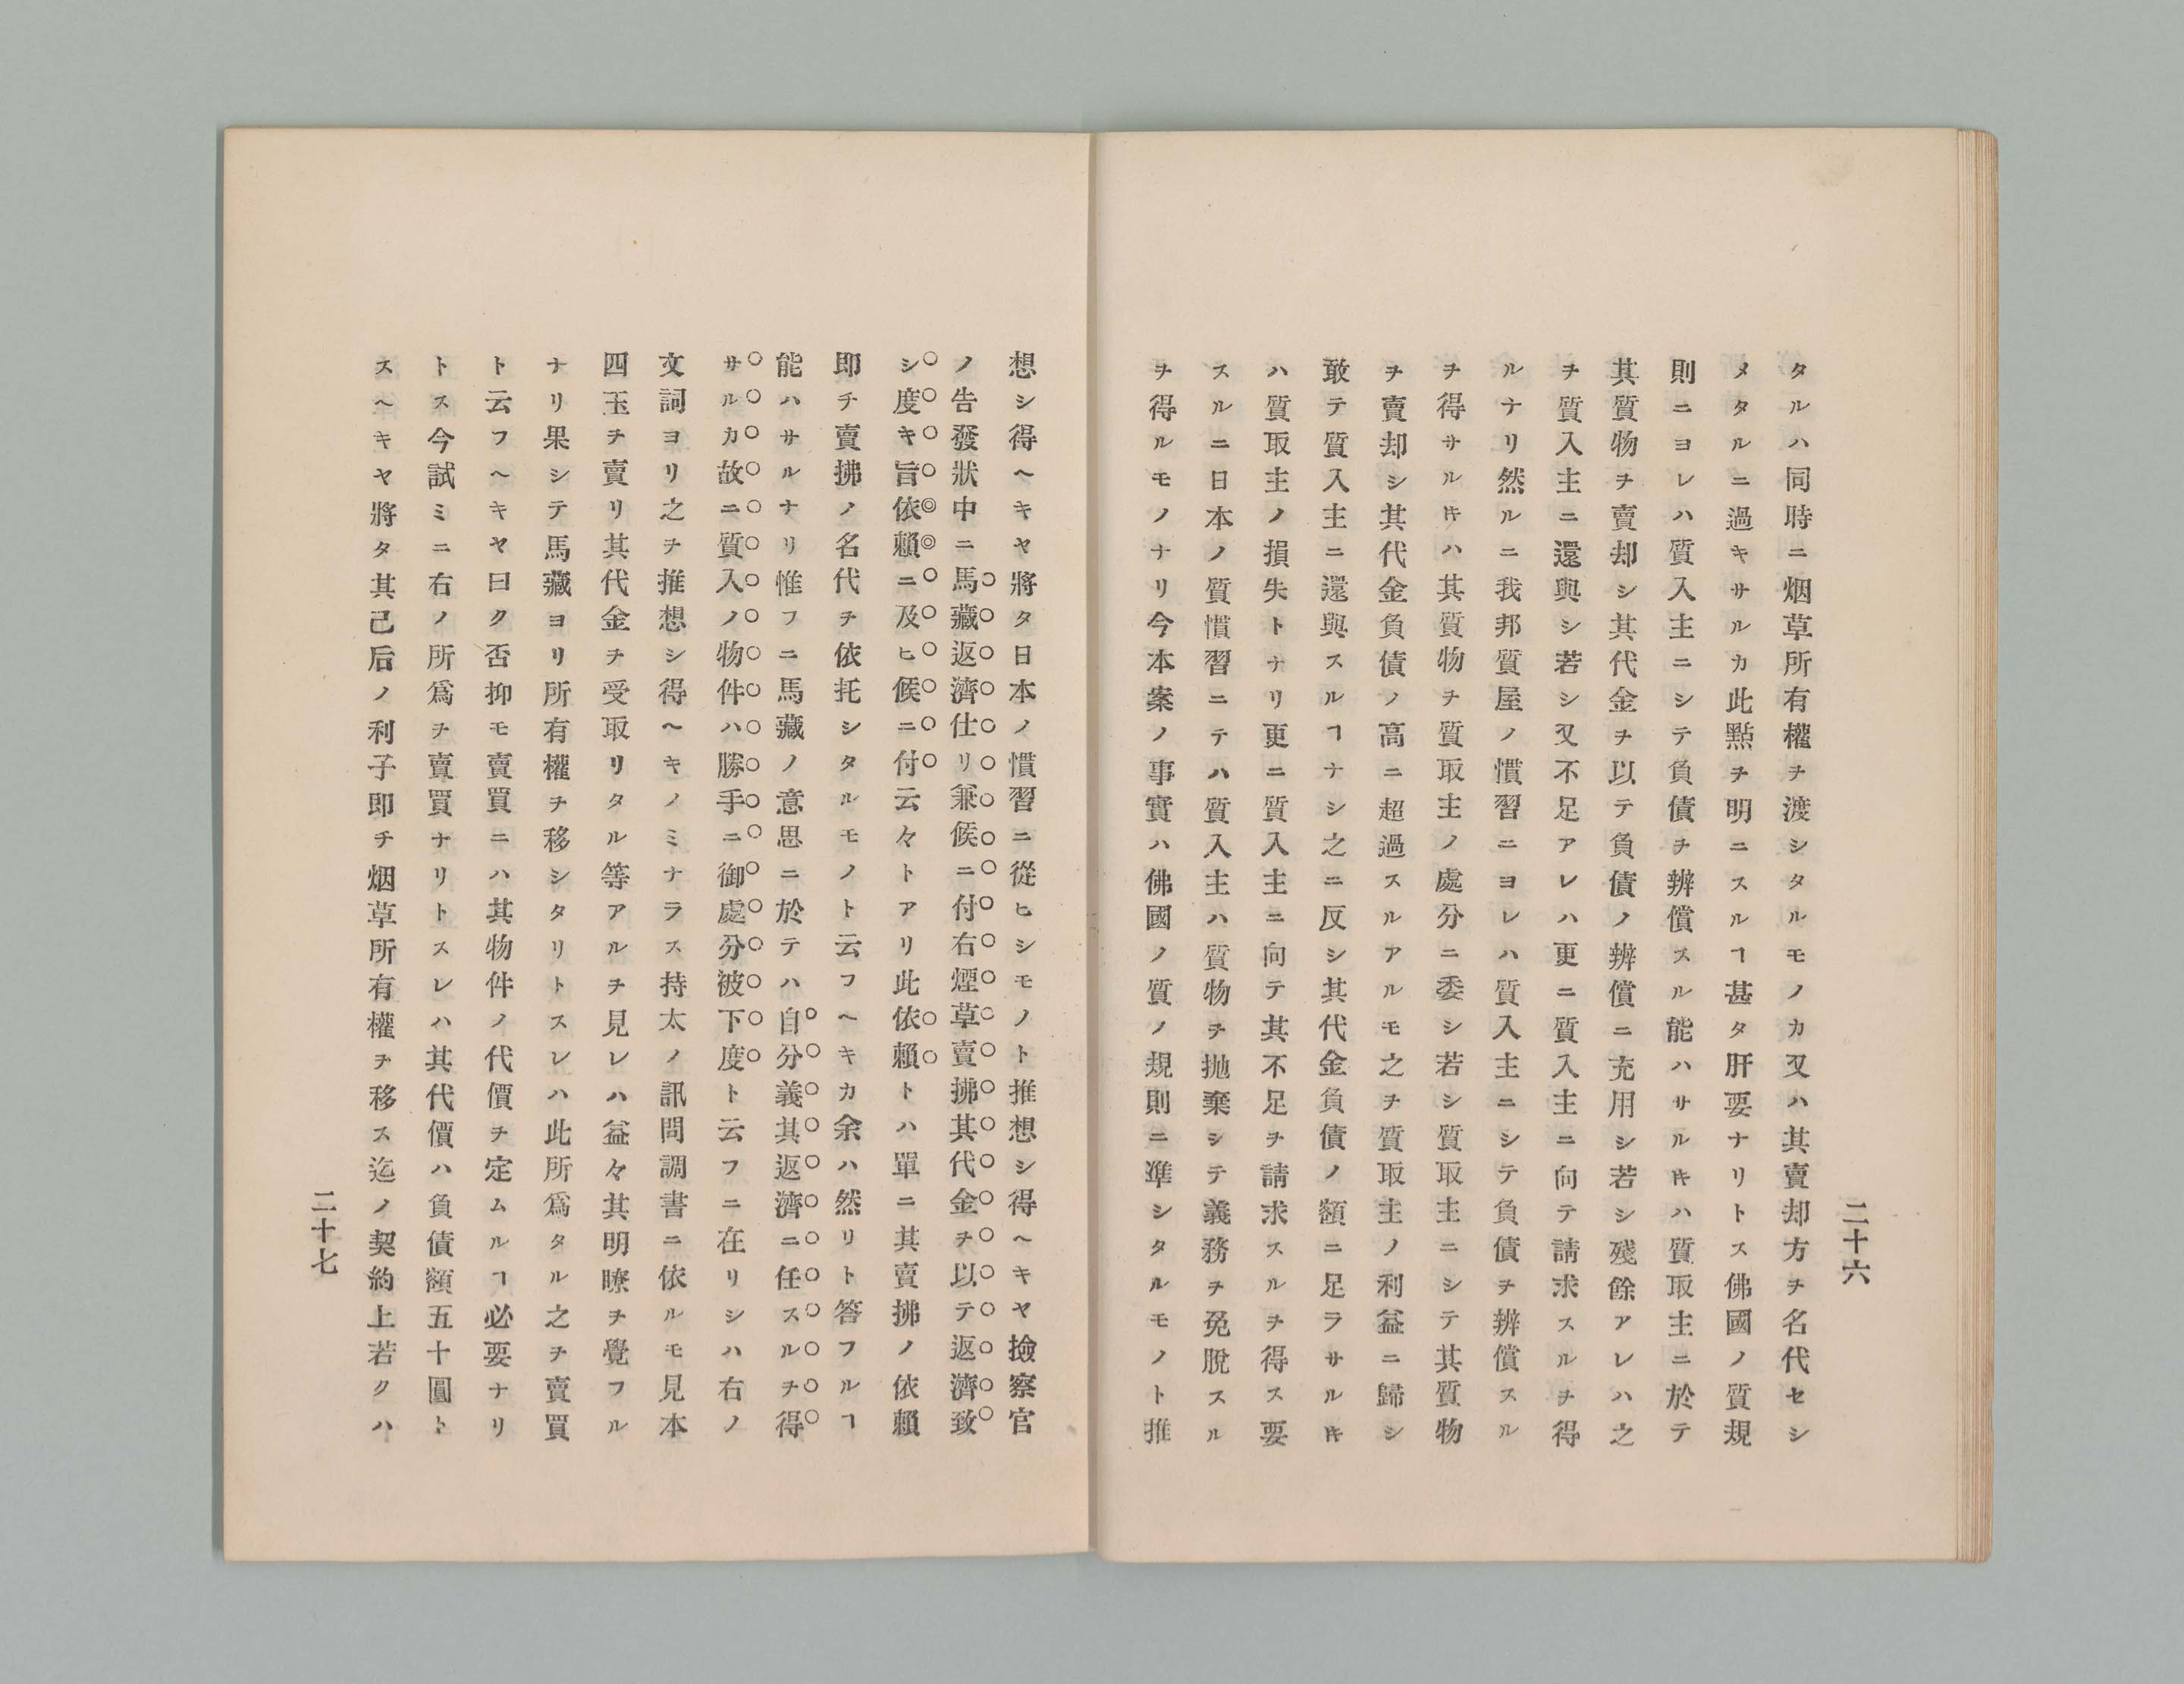 二十六
タルハ同時ニ烟草所有權ヲ渡シタルモノカ又ハ其賣却方ヲ名代セシ
メタルニ過キサルカ此點ヲ明ニスルヿ甚タ肝要ナリトス佛國ノ質規
則ニヨレハ質入主ニシテ負債ヲ辨償スル能ハサルㇳキハ質取主ニ於テ
其質物ヲ賣却シ其代金ヲ以テ負債ノ辨償ニ充用シ若シ殘餘アレハ之
ヲ質入主ニ還與シ若シ又不足アレハ更ニ質入主ニ向テ請求スルヲ得
ルナリ然ルニ我邦質屋ノ慣習ニヨレハ質入主ニシテ負債ヲ辨償スル
ヲ得サルㇳキハ其質物ヲ質取主ノ處分ニ委シ若シ質取主ニシテ其質物
ヲ賣却シ其代金負債ノ高ニ超過スルアルモ之ヲ質取主ノ利益ニ歸シ
敢テ質入主ニ還與スルヿナシ之ニ反シ其代金負債ノ額ニ足ラサルㇳキ
ハ質取主ノ損失トナリ更ニ質入主ニ向テ其不足ヲ請求スルヲ得ス要
スルニ日本ノ質慣習ニテハ質入主ハ質物ヲ抛棄シテ義務ヲ免脫スル
ヲ得ルモノナリ今本案ノ事實ハ佛國ノ質ノ規則ニ準シタルモノト推
想シ得ヘキヤ將タ日本ノ慣習ニ從ヒシモノト推想シ得ヘキヤ撿察官
ノ告發狀中ニ馬藏返濟仕リ兼候ニ付右煙草賣拂其代金ヲ以テ返濟致
シ度キ旨依賴ニ及ヒ候ニ付云々トアリ此依賴トハ單ニ其賣拂ノ依賴
即チ賣拂ノ名代ヲ依托シタルモノト云フヘキカ余ハ然リト答フルヿ
能ハサルナリ惟フニ馬藏ノ意思ニ於テハ自分義其返濟ニ任スルヲ得
サルカ故ニ質入ノ物件ハ勝手ニ御處分被下度ト云フニ在リシハ右ノ
文詞ヨリ之ヲ推想シ得ヘキノミナラス持太ノ訊問調書ニ依ルモ見本
四玉ヲ賣リ其代金ヲ受取リタル等アルヲ見レハ益々其明瞭ヲ覺フル
ナリ果シテ馬藏ヨリ所有權ヲ移シタリトスレハ此所爲タル之ヲ賣買
ト云フヘキヤ曰ク否抑モ賣買ニハ其物件ノ代價ヲ定ムルヿ必要ナリ
トス今試ミニ右ノ所爲ヲ賣買ナリトスレハ其代價ハ負債額五十圓ト
スヘキヤ將タ其己后ノ利子即チ烟草所有權ヲ移ス迄ノ契約上若クハ
二十七